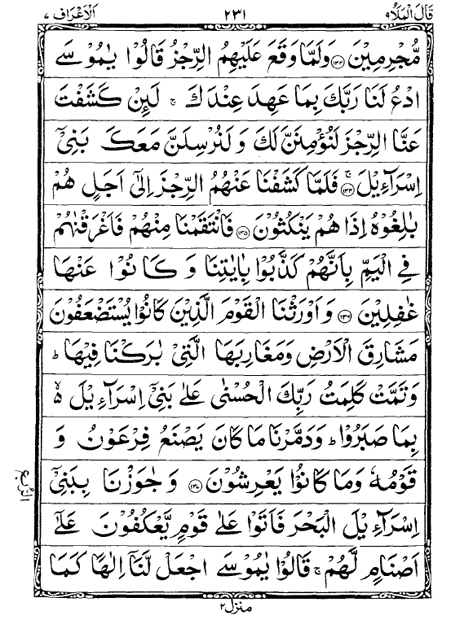 قَالَ الْمَلَأُ ٩ ٢٣١ اَلْاَعْرَاف ٧
مُّجْرِمِيْنَ ﴿۱۳۳﴾ وَلَمَّا وَقَعَ عَلَيْهِمُ الرِّجْزُ قَالُوْا يٰمُوْسَى
ادْعُ لَنَا رَبَّكَ بِمَا عَهِدَ عِنْدَكَ ۚ لَئِنْ كَشَفْتَ
عَنَّا الرِّجْزَ لَنُؤْمِنَنَّ لَكَ وَ لَنُرْسِلَنَّ مَعَكَ بَنِيْۤ
اِسْرَآءِيْلَ ﴿۱۳۴﴾ فَلَمَّا كَشَفْنَا عَنْهُمُ الرِّجْزَ اِلٰۤى اَجَلٍ هُمْ
بٰلِغُوْهُ اِذَا هُمْ يَنْكُثُوْنَ ﴿۱۳۵﴾ فَانْتَقَمْنَا مِنْهُمْ فَاَغْرَقْنٰهُمْ
فِي الْيَمِّ بِاَنَّهُمْ كَذَّبُوْا بِاٰيٰتِنَا وَ كَانُوْا عَنْهَا
غٰفِلِيْنَ ﴿۱۳۶﴾ وَ اَوْرَثْنَا الْقَوْمَ الَّذِيْنَ كَانُوْا يُسْتَضْعَفُوْنَ
مَشَارِقَ الْاَرْضِ وَمَغَارِبَهَا الَّتِيْ بٰرَكْنَا فِيْهَا ؕ
وَتَمَّتْ كَلِمَتُ رَبِّكَ الْحُسْنٰى عَلٰى بَنِيْۤ اِسْرَآءِيْلَ ۙ۬
بِمَا صَبَرُوْا ؕ وَدَمَّرْنَا مَا كَانَ يَصْنَعُ فِرْعَوْنُ وَ
قَوْمُهٗ وَمَا كَانُوْا يَعْرِشُوْنَ ﴿۱۳۷﴾ وَ جٰوَزْنَا بِبَنِيْۤ
اِسْرَآءِيْلَ الْبَحْرَ فَاَتَوْا عَلٰى قَوْمٍ يَّعْكُفُوْنَ عَلٰۤى
اَصْنَامٍ لَّهُمْ ۚ قَالُوْا يٰمُوْسَى اجْعَلْ لَّنَاۤ اِلٰهًا كَمَا
الربع
منزل ٢